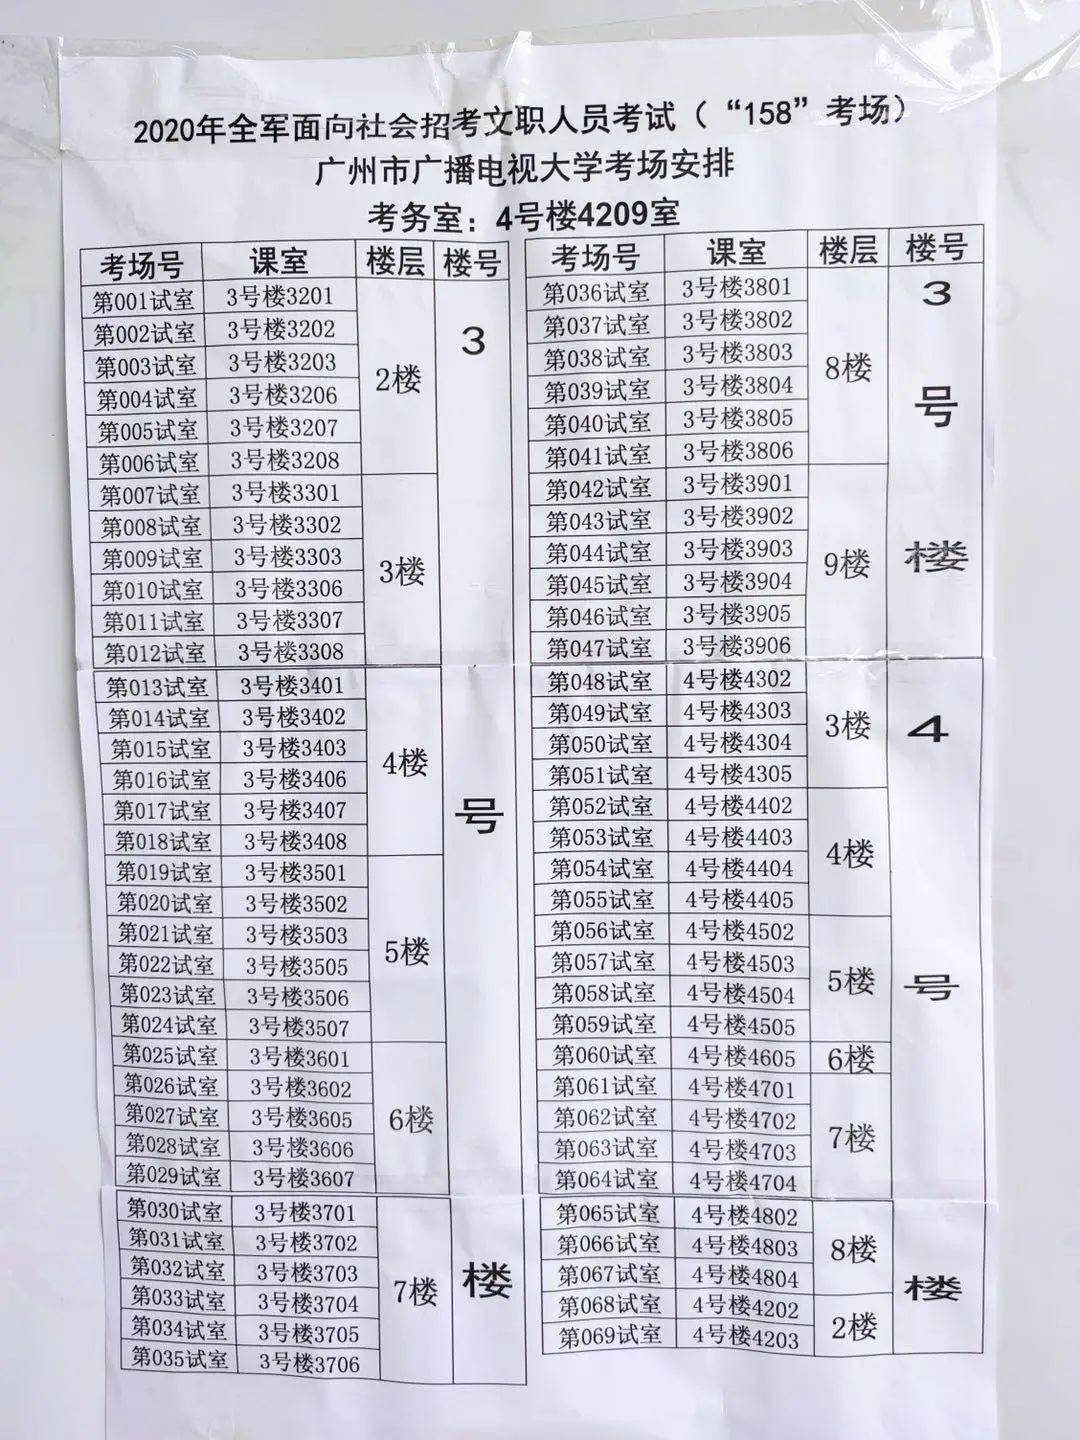 2020年全军面向社会招考文职人员考试（“158”考场）
广州市广播电视大学考场安排
考务室：4号楼4209室
考场号 课室 楼层 楼号
第001试室 3号楼3201
第002试室 3号楼3202
第003试室 3号楼3203
第004试室 3号楼3206
第005试室 3号楼3207
第006试室 3号楼3208
2楼
第007试室 3号楼3301
第008试室 3号楼3302
第009试室 3号楼3303
第010试室 3号楼3306
第011试室 3号楼3307
第012试室 3号楼3308
3楼
第013试室 3号楼3401
第014试室 3号楼3402
第015试室 3号楼3403
第016试室 3号楼3406
第017试室 3号楼3407
第018试室 3号楼3408
4楼
第019试室 3号楼3501
第020试室 3号楼3502
第021试室 3号楼3503
第022试室 3号楼3505
第023试室 3号楼3506
第024试室 3号楼3507
5楼
第025试室 3号楼3601
第026试室 3号楼3602
第027试室 3号楼3605
第028试室 3号楼3606
第029试室 3号楼3607
6楼
第030试室 3号楼3701
第031试室 3号楼3702
第032试室 3号楼3703
第033试室 3号楼3704
第034试室 3号楼3705
第035试室 3号楼3706
7楼
3
号
楼
考场号 课室 楼层 楼号
第036试室 3号楼3801
第037试室 3号楼3802
第038试室 3号楼3803
第039试室 3号楼3804
第040试室 3号楼3805
第041试室 3号楼3806
8楼
第042试室 3号楼3901
第043试室 3号楼3902
第044试室 3号楼3903
第045试室 3号楼3904
第046试室 3号楼3905
第047试室 3号楼3906
9楼
3
号
楼
第048试室 4号楼4302
第049试室 4号楼4303
第050试室 4号楼4304
第051试室 4号楼4305
3楼
第052试室 4号楼4402
第053试室 4号楼4403
第054试室 4号楼4404
第055试室 4号楼4405
4楼
第056试室 4号楼4502
第057试室 4号楼4503
第058试室 4号楼4504
第059试室 4号楼4505
5楼
第060试室 4号楼4605 6楼
第061试室 4号楼4701
第062试室 4号楼4702
第063试室 4号楼4703
第064试室 4号楼4704
7楼
第065试室 4号楼4802
第066试室 4号楼4803
第067试室 4号楼4804
8楼
第068试室 4号楼4202
第069试室 4号楼4203
2楼
4
号
楼